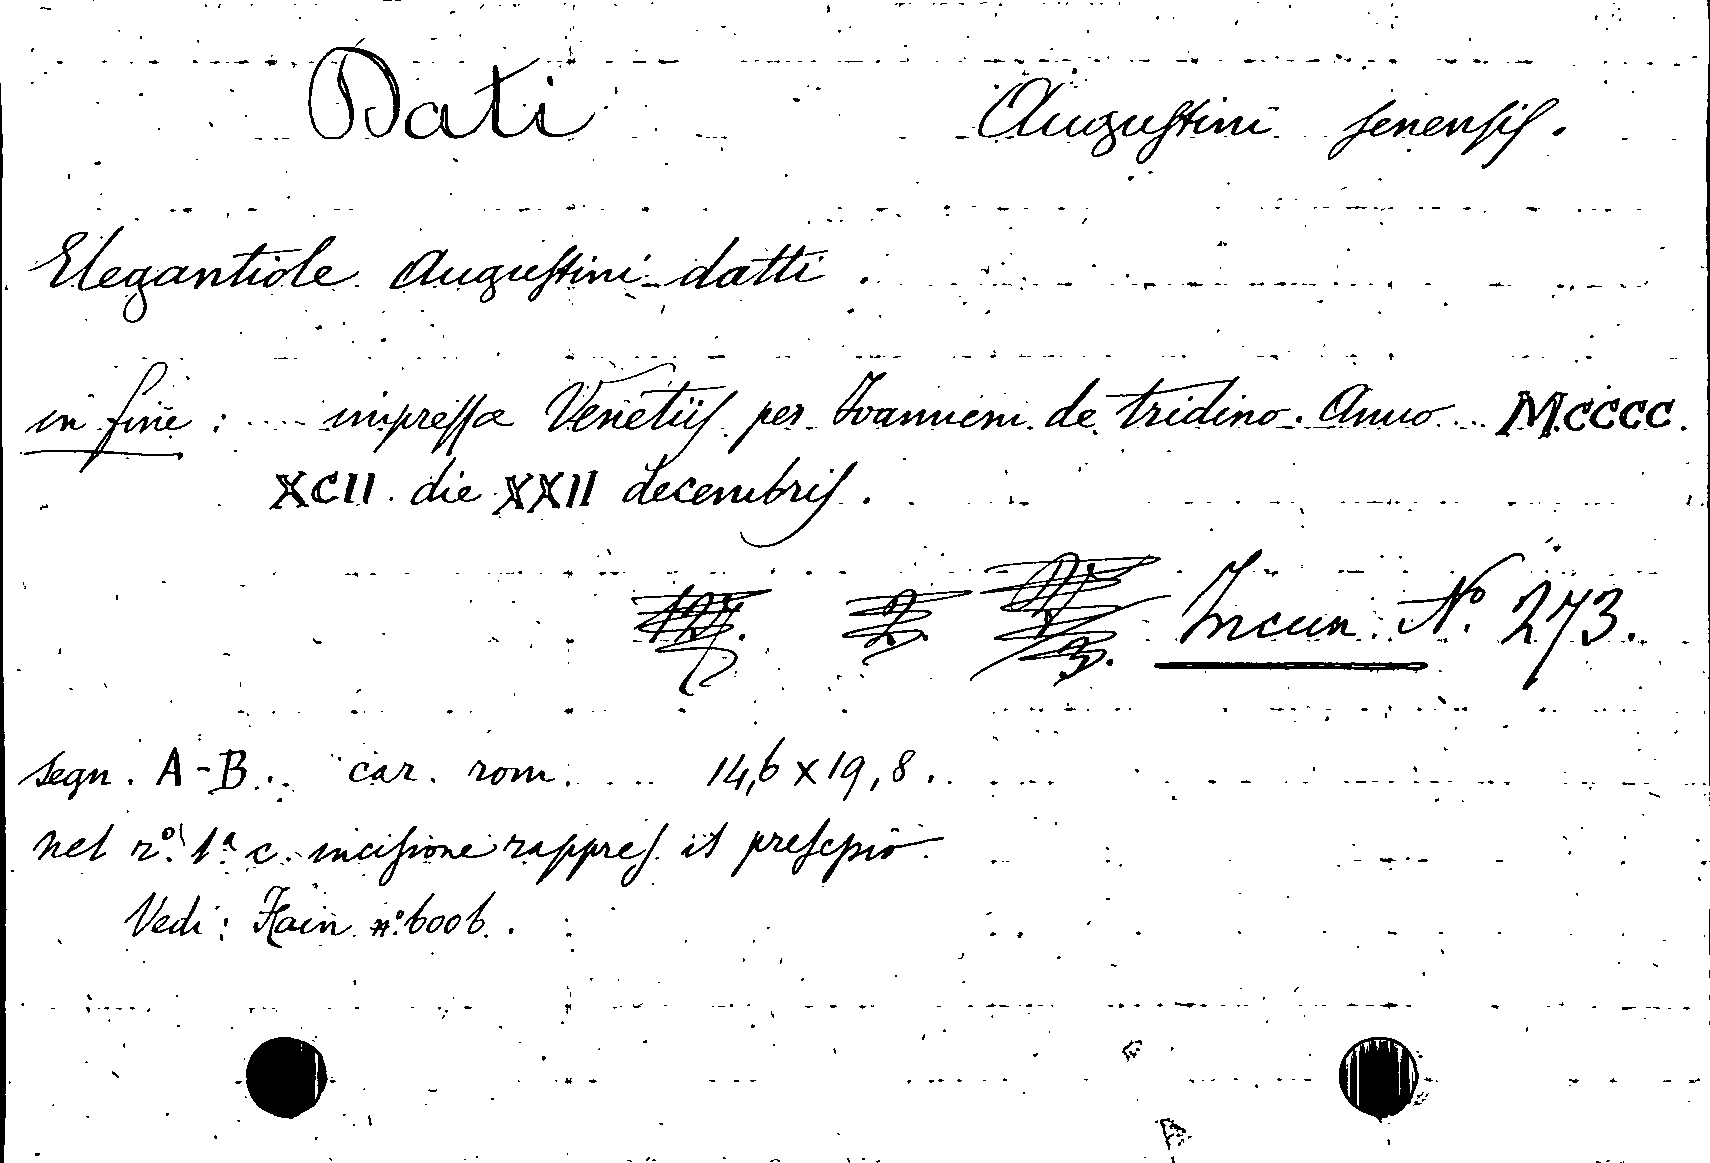 Dati Augustini senensis.
Elegantiole Augustini datti.
in fine: impressa Venetiis per Ioannem de tridino. Anno MCCCC.
XCII. die XXII decembris.
Incun. N.º 273.
segn. A-B. car. rom. 14,6 x 19,8.
nel rº. 1ª c. incisione rappres. il presepio
Vedi: Hain nº. 6006.